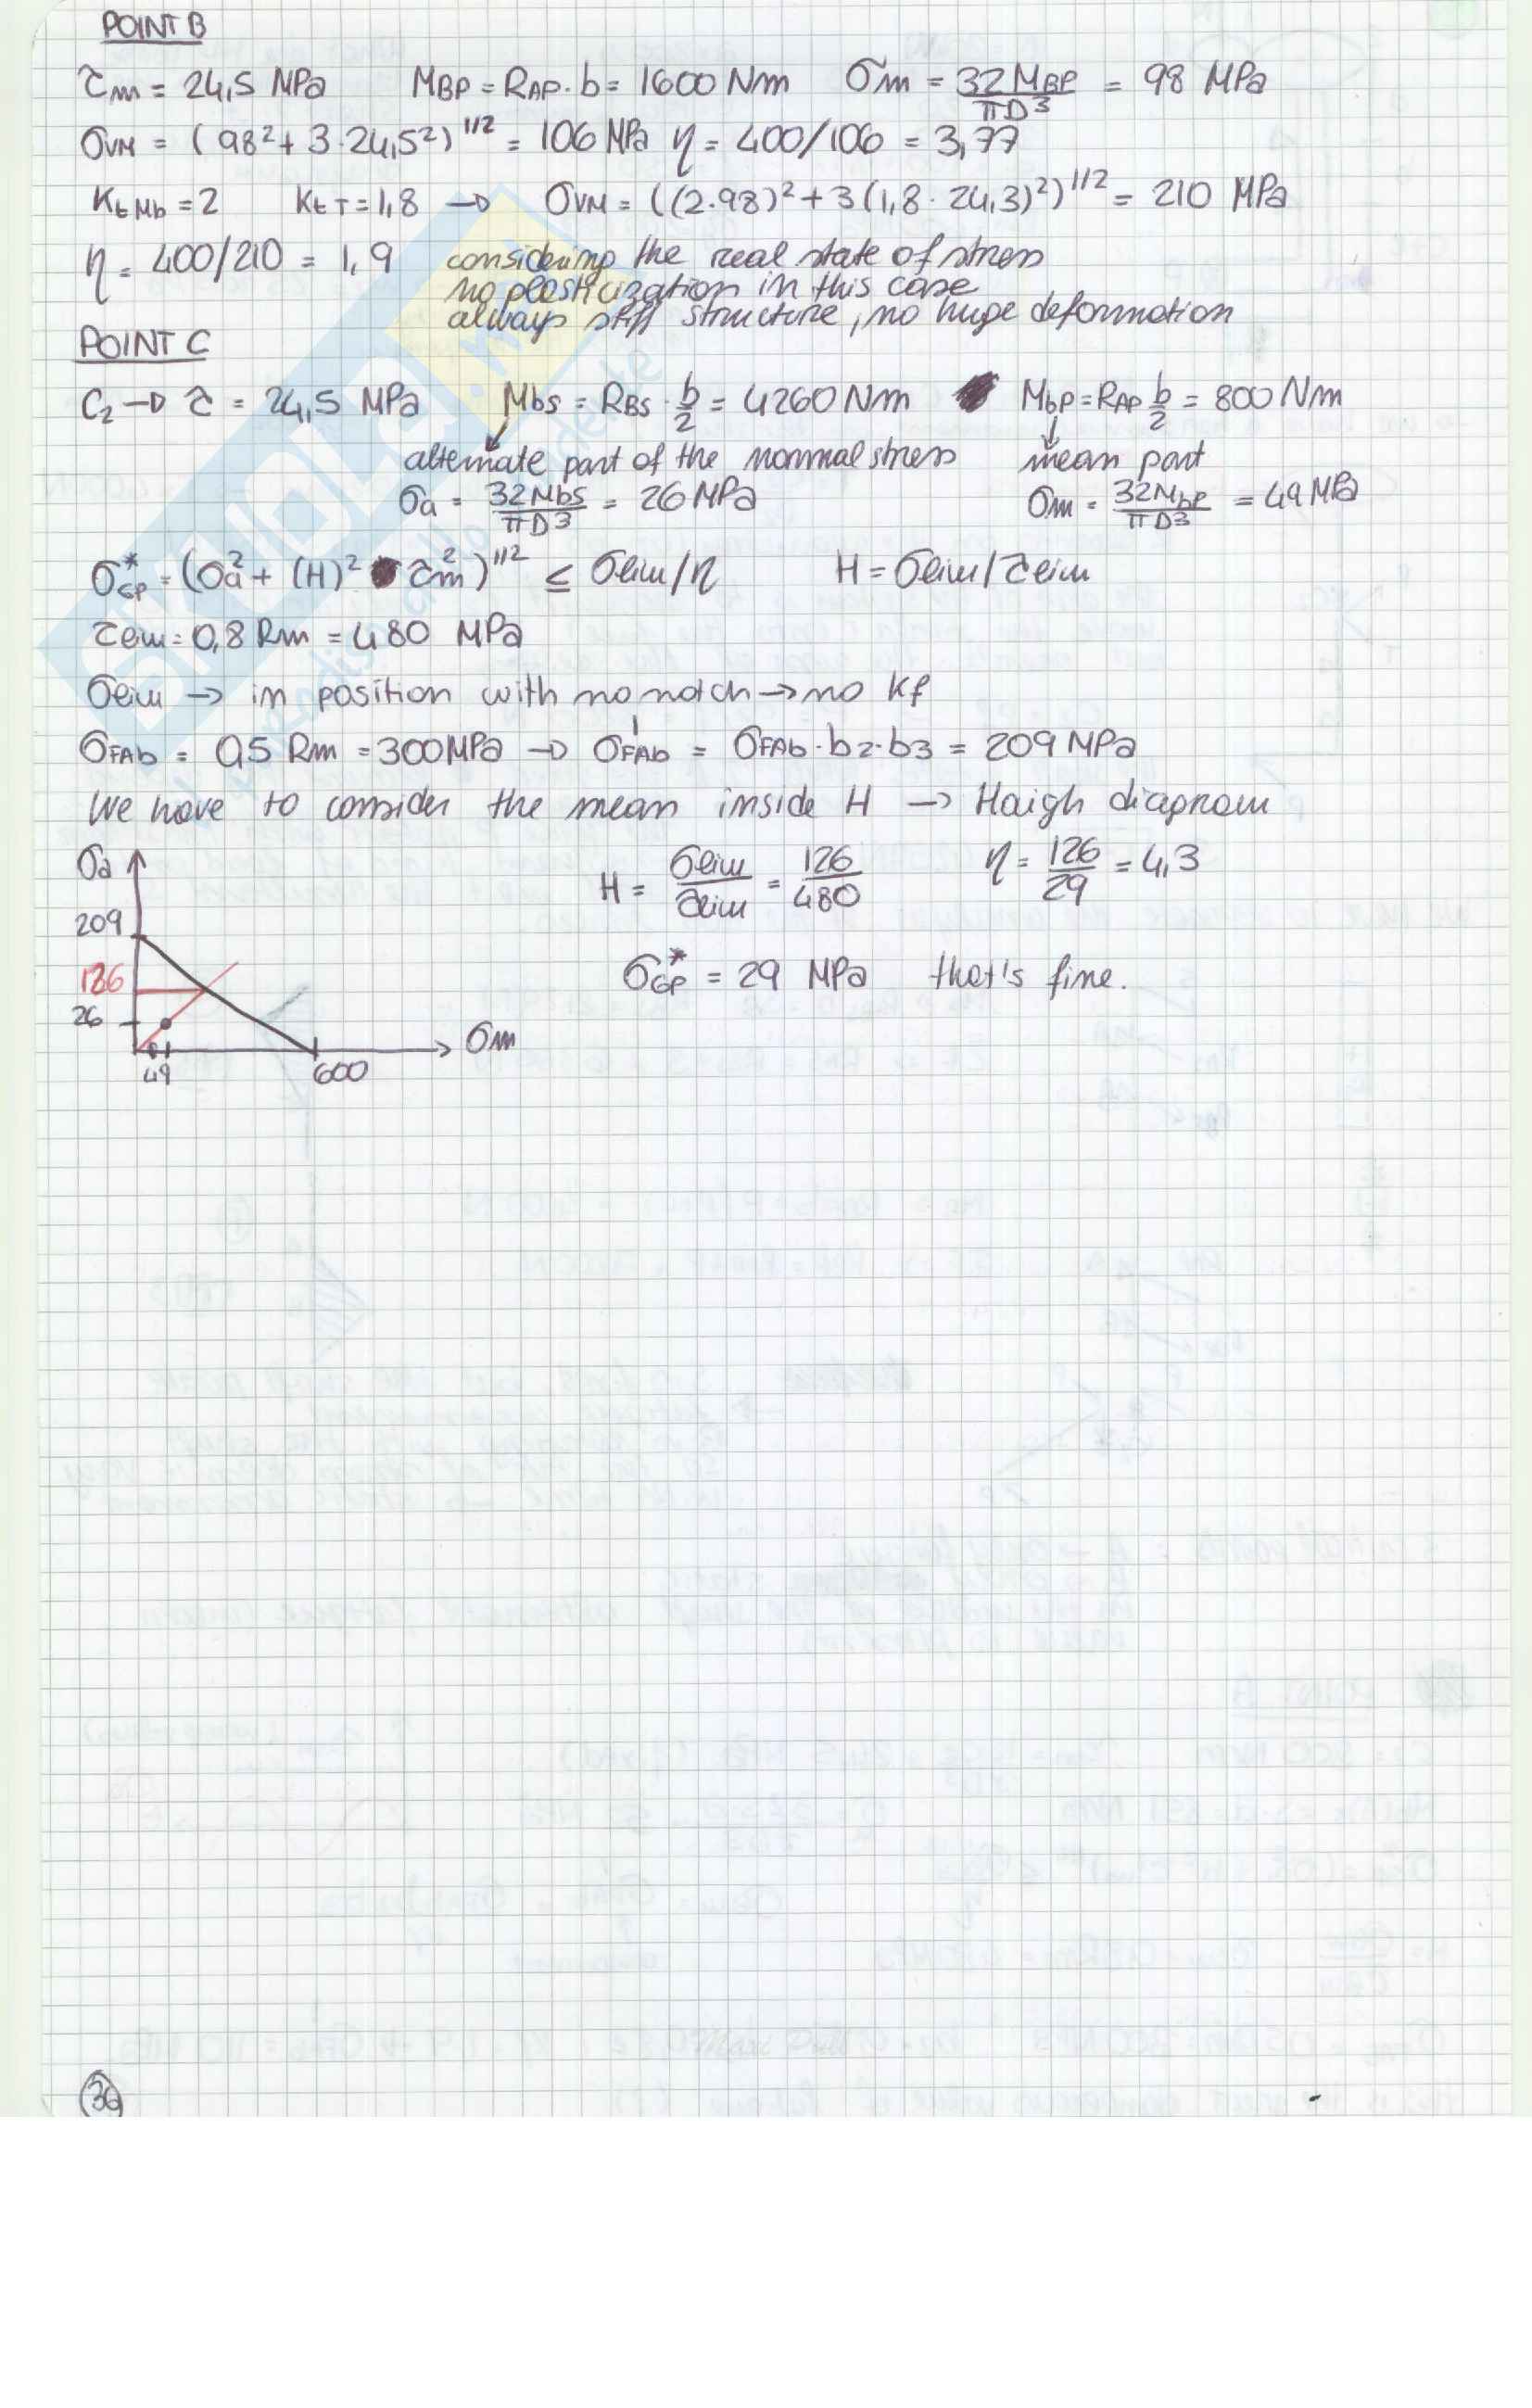 POINT B
τm = 24,5 MPa MBP = RAP · b = 1600 Nm σm = 32 MBP / πD³ = 98 MPa
σVM = (98² + 3·24,5²)^1/2 = 106 MPa η = 400/106 = 3,77
Kt Mb = 2 Kt T = 1,8 → σVM = ((2·98)² + 3(1,8·24,3)²)^1/2 = 210 MPa
η = 400/210 = 1,9 considering the real state of stress
no plasticization in this case
always stiff structure, no huge deformation
POINT C
C2 → τ = 24,5 MPa Mbs = RBS · b/2 = 4260 Nm MbP = RAP b/2 = 800 Nm
alternate part of the normal stress mean part
σa = 32Mbs / πD³ = 26 MPa σm = 32MbP / πD³ = 49 MPa
σ*GP = (σa² + (H)² τm²)^1/2 ≤ σlim/η H = σlim/τlim
τlim = 0,8 Rm = 480 MPa
σlim → in position with no notch → no Kf
σFAb = 0,5 Rm = 300 MPa → σ'FAb = σFAb · b2 · b3 = 209 MPa
We have to consider the mean inside H → Haigh diagram
σa
H = σlim / τlim = 126 / 480 η = 126 / 29 = 4,3
209
126
σ*GP = 29 MPa that's fine.
26
σm
49 600
36